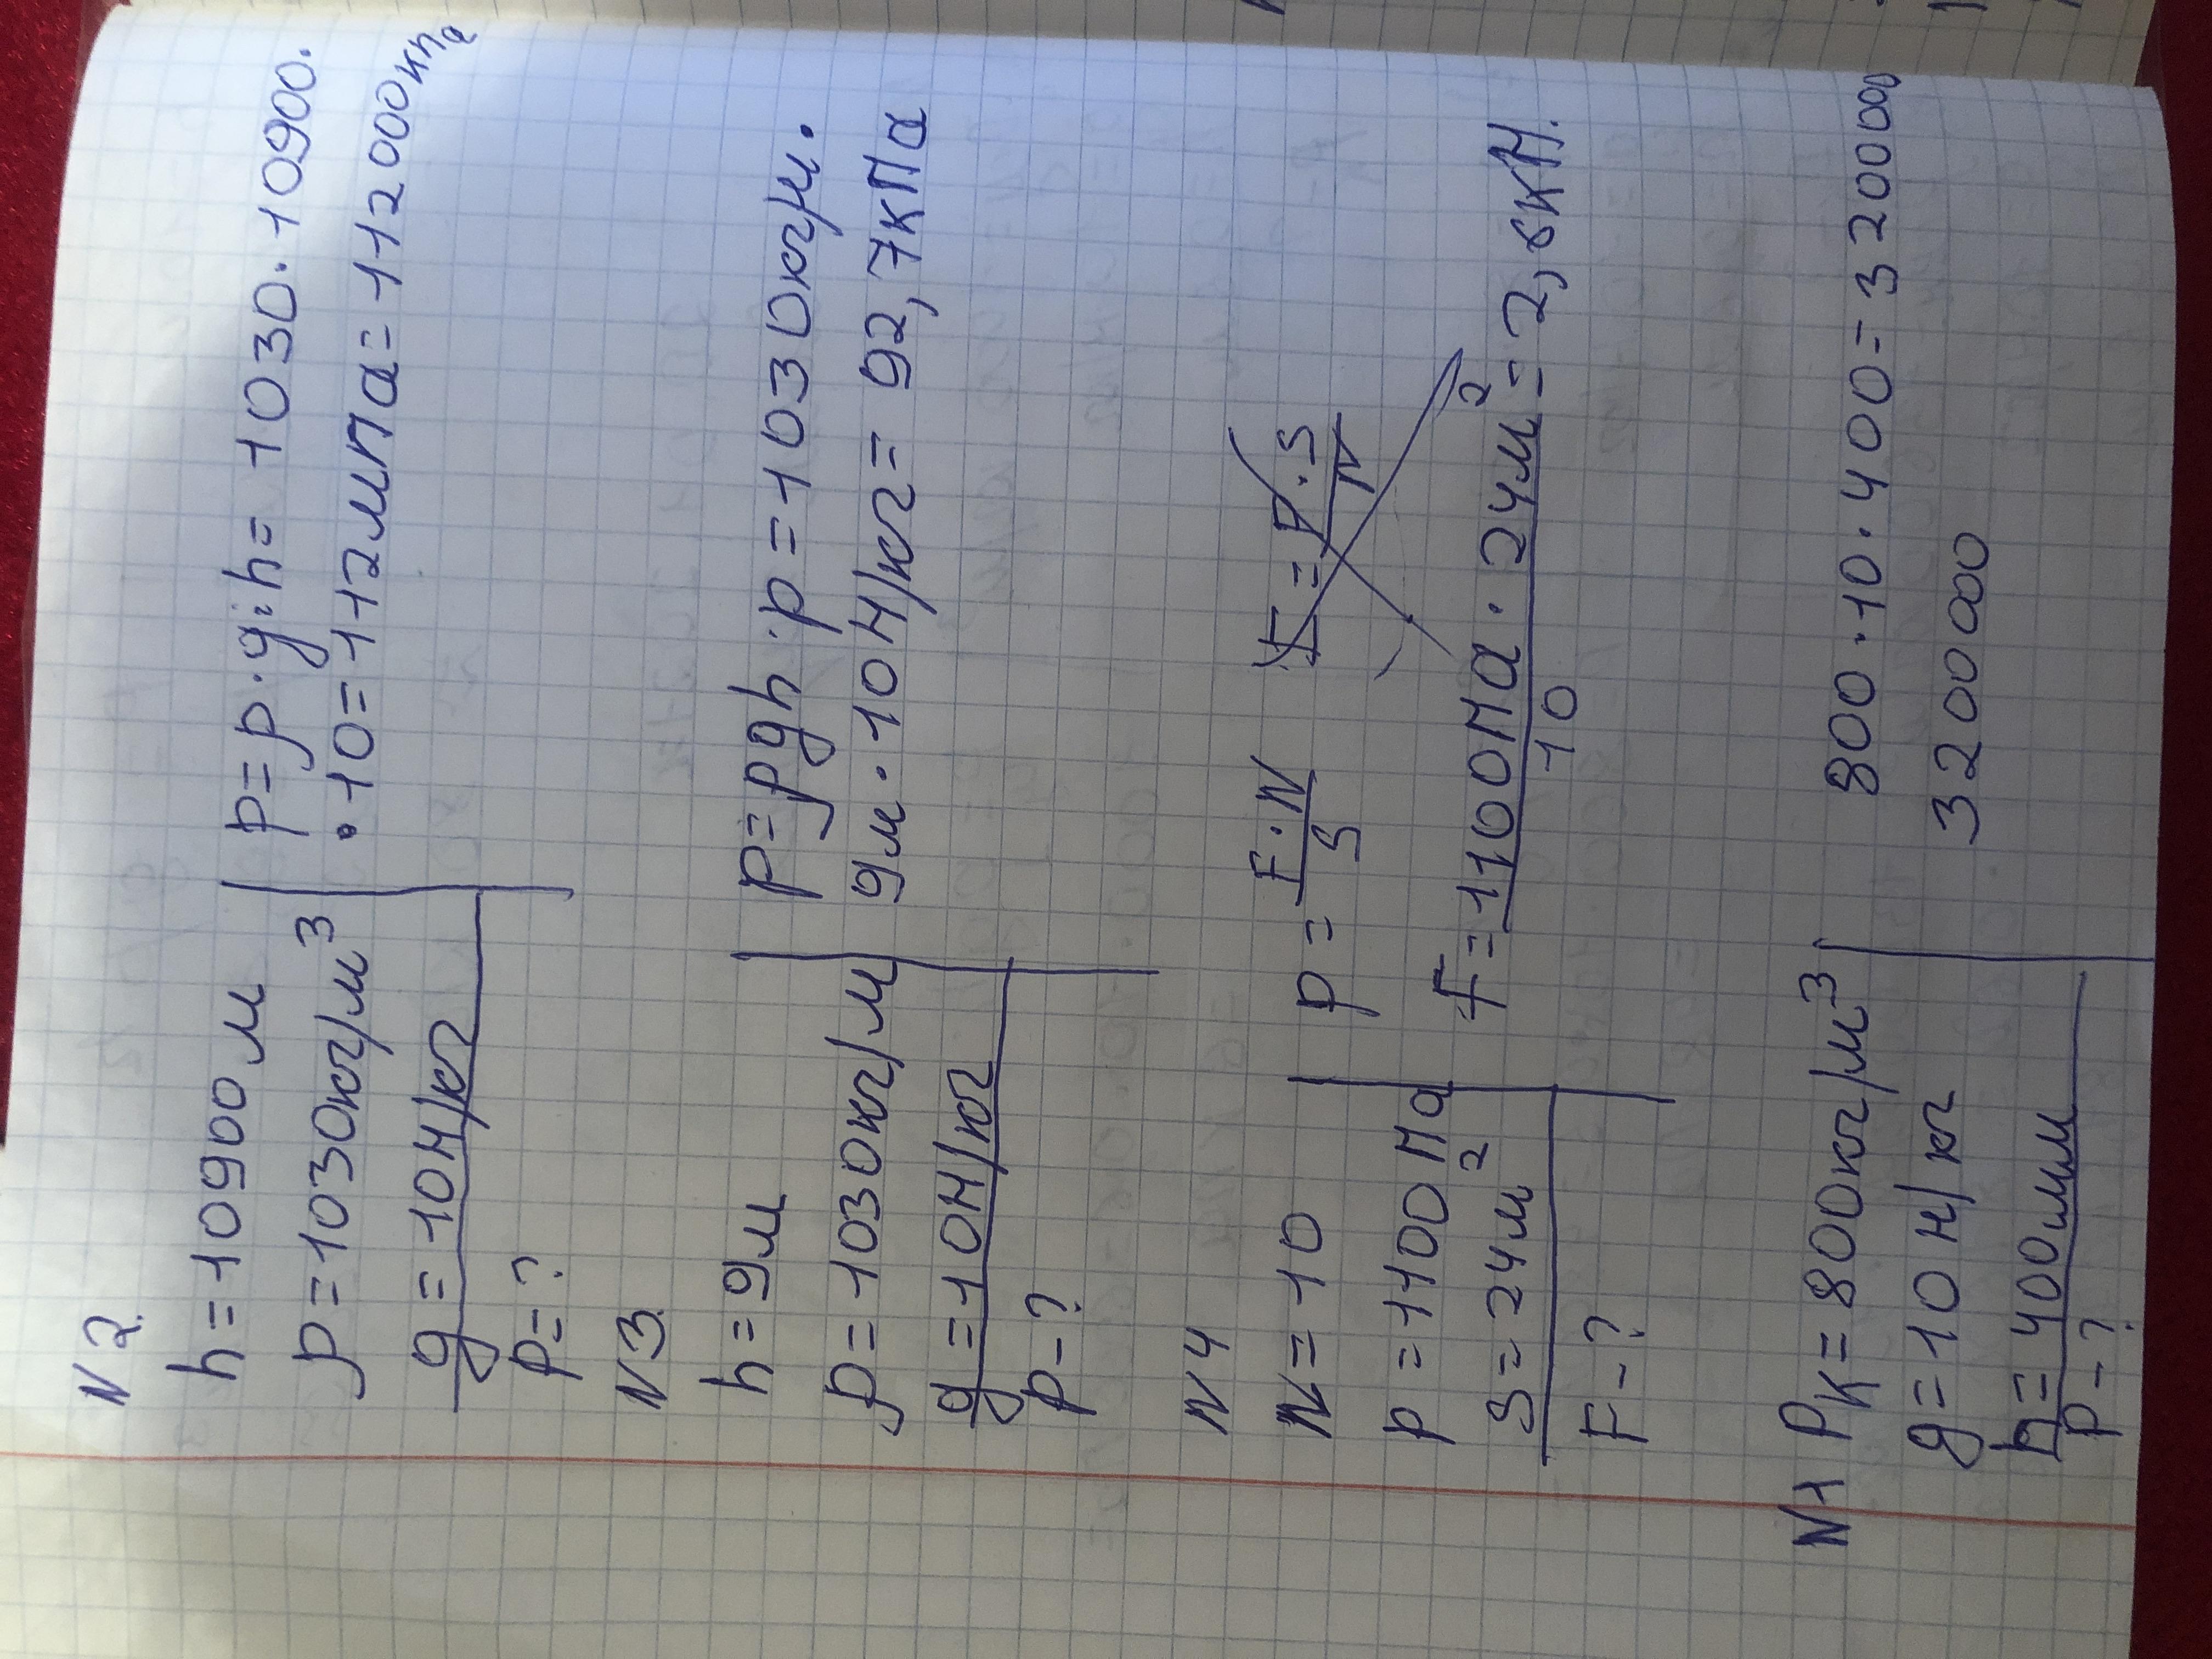 N 2.
h = 10900 м
ρ = 1030кг/м³
g = 10Н/кг
p = ?
p = ρ · g · h = 1030 · 10900 ·
· 10 = 112мпа = 112000кпа
N 3.
h = 9м
ρ = 1030кг/м
g = 10Н/кг
p - ?
p = ρgh · p = 1030кг/м ·
9м · 10Н/кг = 92,7кПа
N 4
N = 10
p = 1100 Па
S = 24м²
F - ?
p = F · N / S
F = 1100Па · 24м² / 10 = 2,6кН.
N1 PK = 800кг/м³
g = 10 н/кг
h = 400мм
p - ?
800 · 10 · 400 = 3200000
3200000